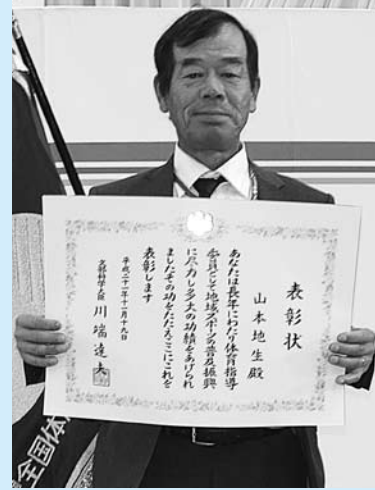 表彰状
山本地生殿
あなたは長年にわたり体育指導
委員として地域スポーツの普及振興
に尽力し多大の功績をあげられ
ましたその功をたたえここにこれを
表彰します
平成二十一年十一月十九日
文部科学大臣 川端達夫
全国体